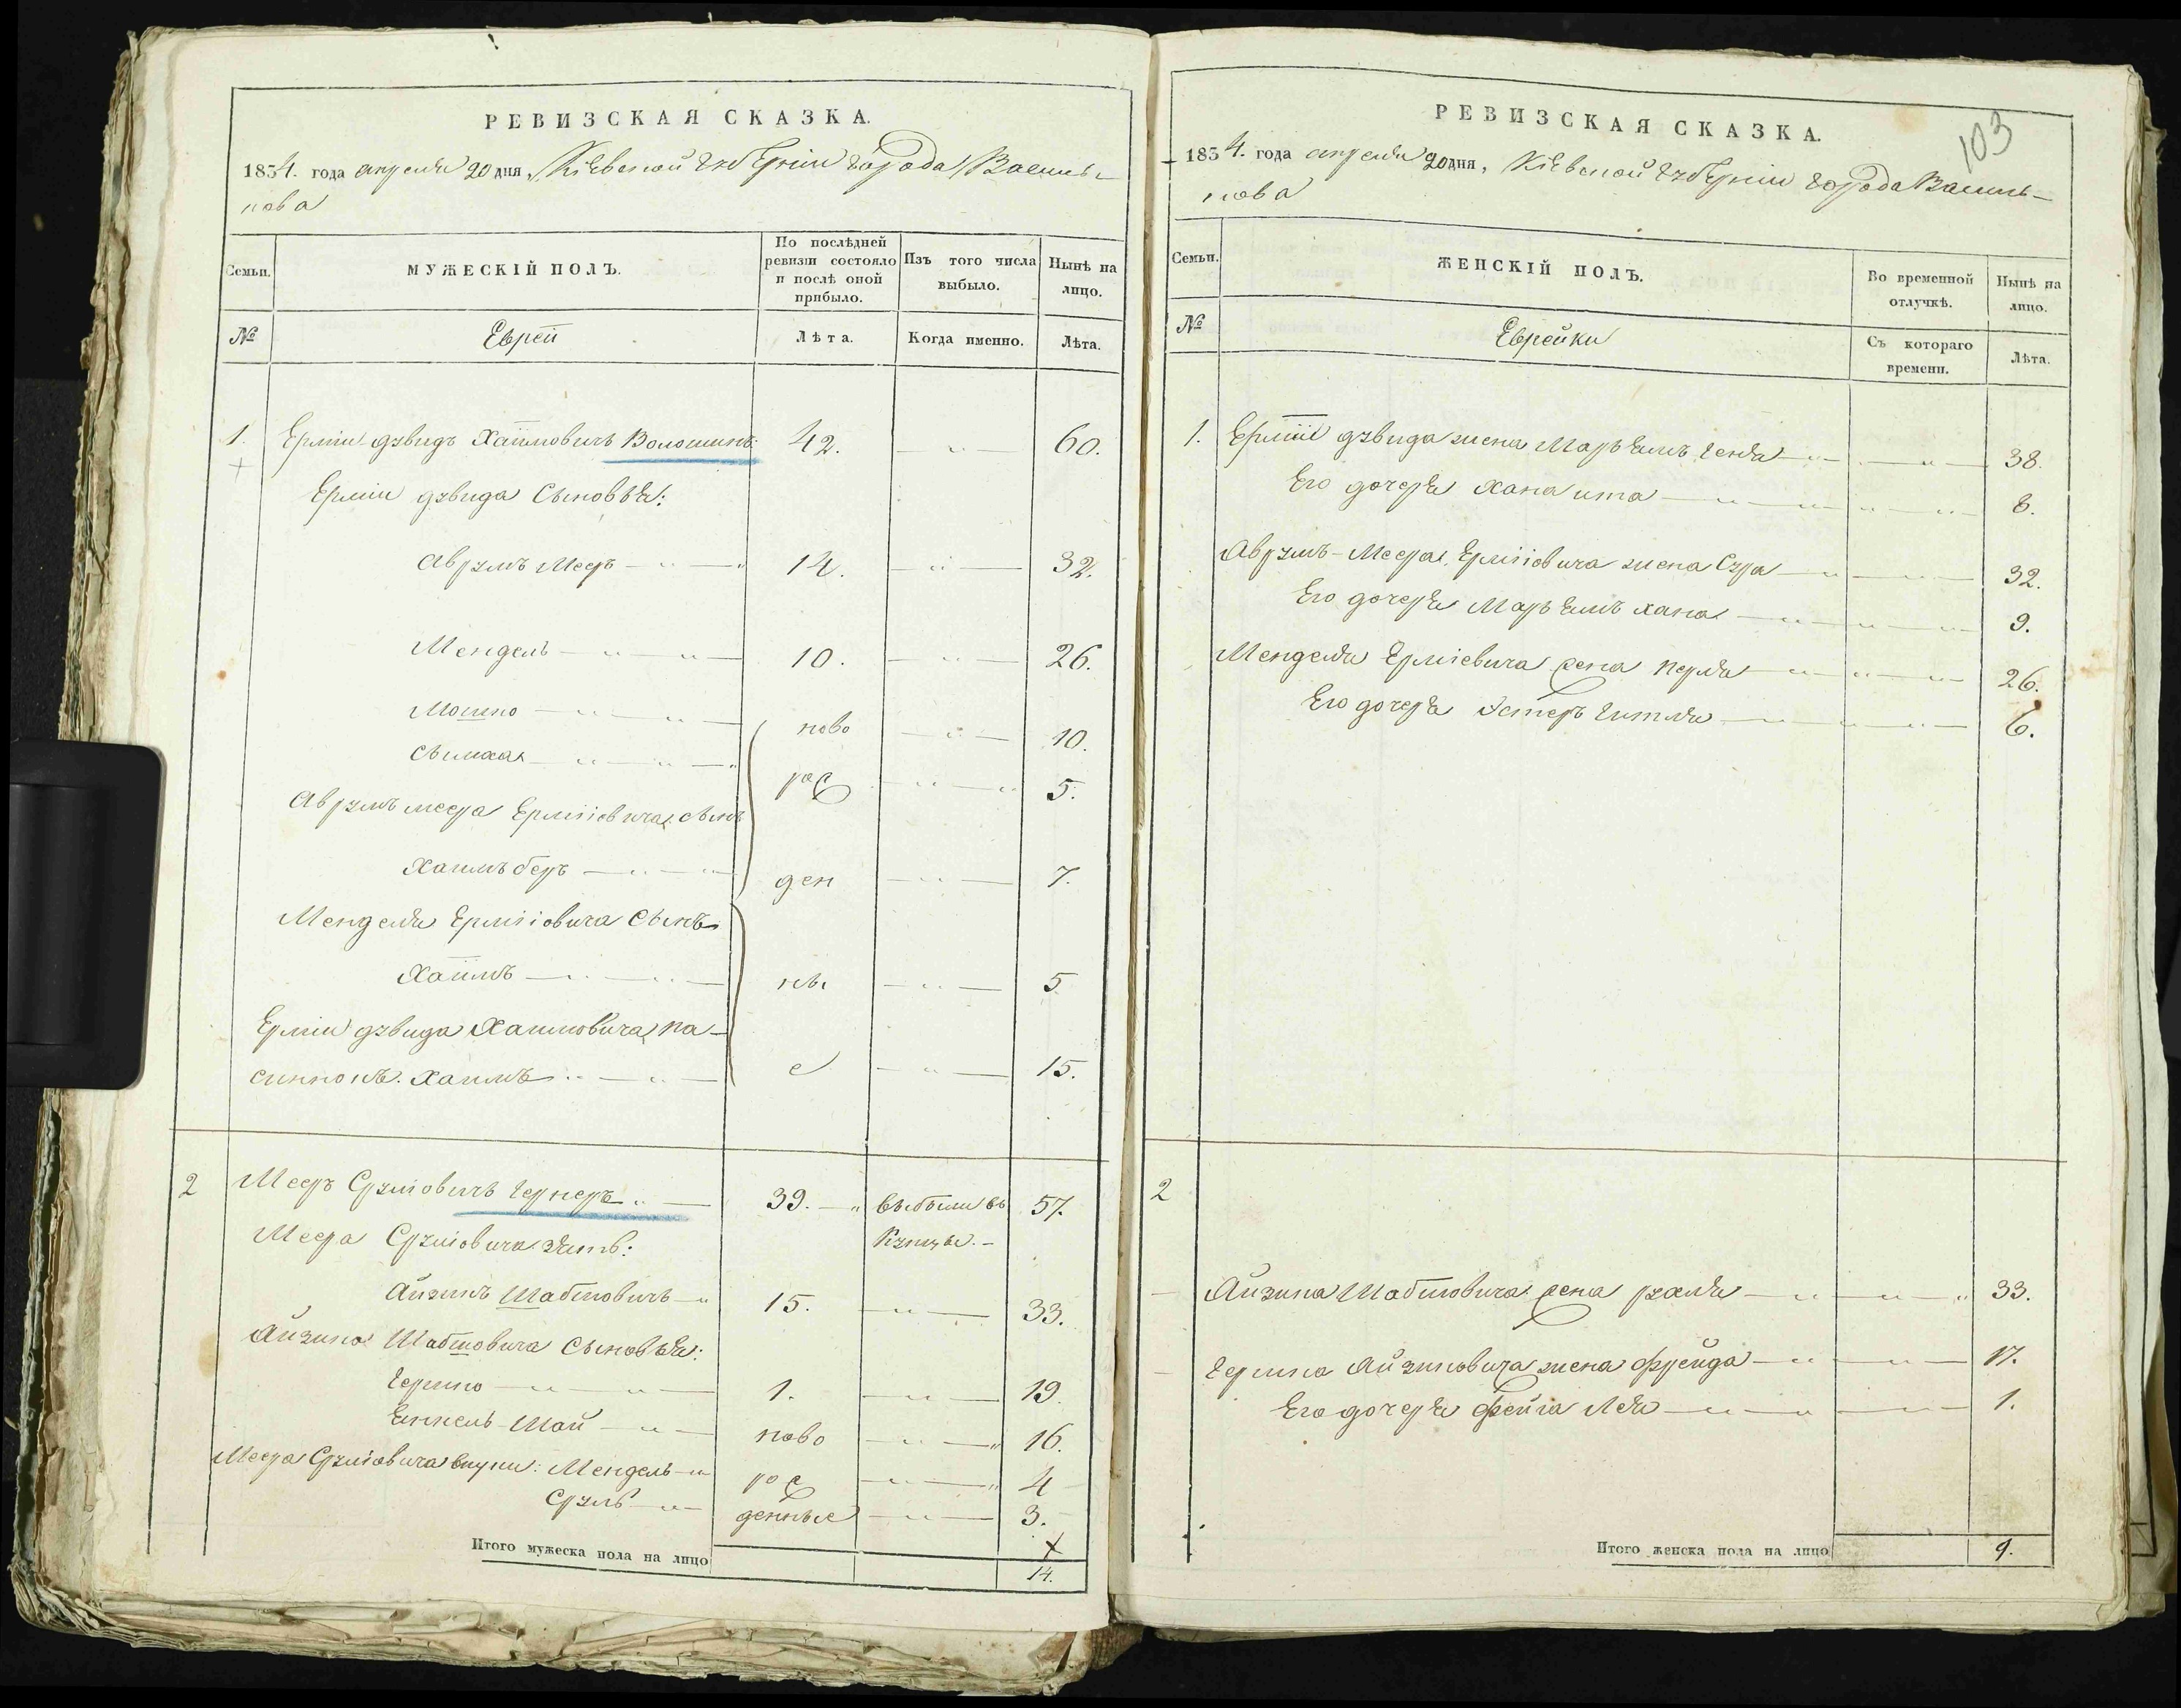 РЕВИЗСКАЯ СКАЗКА.
1854. года апреля 20 дня, Кіевской губерніи города Василь-
кова
Семьи.
МУЖЕСКІЙ ПОЛЪ.
По послѣдней ревизіи состояло и послѣ оной прибыло.
Изъ того числа выбыло.
Нынѣ на лицо.
№
Еврей
Лѣта.
Когда именно.
Лѣта.
1. Ермiи дувидъ Хаiимовичъ Волошинъ 42. — " — 60.
Ермiи дувида Сыновья:
Аврумъ Мееръ — " — 14. — " — 32.
Мендель — " — " — 10. — " — 26.
Мошко — " — " — ново — " — 10.
Сымха — " — " — рос — " — 5.
Аврумъ меера Ермiiовича сынъ
Хаимъ беръ — " — ден — " — 7.
Менделя Ермiiовича Сынъ
Хаiимъ — " — " — ны — " — 5
Ермiи дувида Хаимовича па-
сынокъ. Хаимъ — " — е — " — 15.
2 Мееръ Срулiовичъ Чернеръ " — 39. — " выбыли въ 57.
Купцы. —
Меера Срулiовича зять:
Айзикъ Шабтiовичъ — " 15. — " — 33.
Айзика Шабтiовича Сыновья:
Гершко — " — " — 1. — " — 19.
Енкель-Шай — " — ново — " — 16.
Меера Срулiовича внуки: Мендель — " рос — " — 4
Сруль — " — денные — " — 3.
Итого мужеска пола на лицо 14.
103
РЕВИЗСКАЯ СКАЗКА.
1854. года апреля 20 дня, Кіевской губерніи города Василь-
кова
Семьи.
ЖЕНСКІЙ ПОЛЪ.
Во временной отлучкѣ.
Нынѣ на лицо.
№
Еврейки
Съ котораго времени.
Лѣта.
1. Ермiи дувида жена Марьемъ Геня — " — " — 38.
Его дочеря Хана ита — " — " — 8.
Аврумъ-Меера Ермiiовича жена Сура — " — " — 32.
Его дочеря Марьемъ хана — " — " — 9.
Менделя Ермiевича жена перля — " — " — 26.
Его дочеря Эстеръ Гитля — " — " — 6.
2
Айзика Шабтiовича жена рухля — " — " — 33.
Гершка Айзиковича жена фрейда — " — 17.
Его дочеря Фейга Лея — " — " — 1.
Итого женска пола на лицо 9.